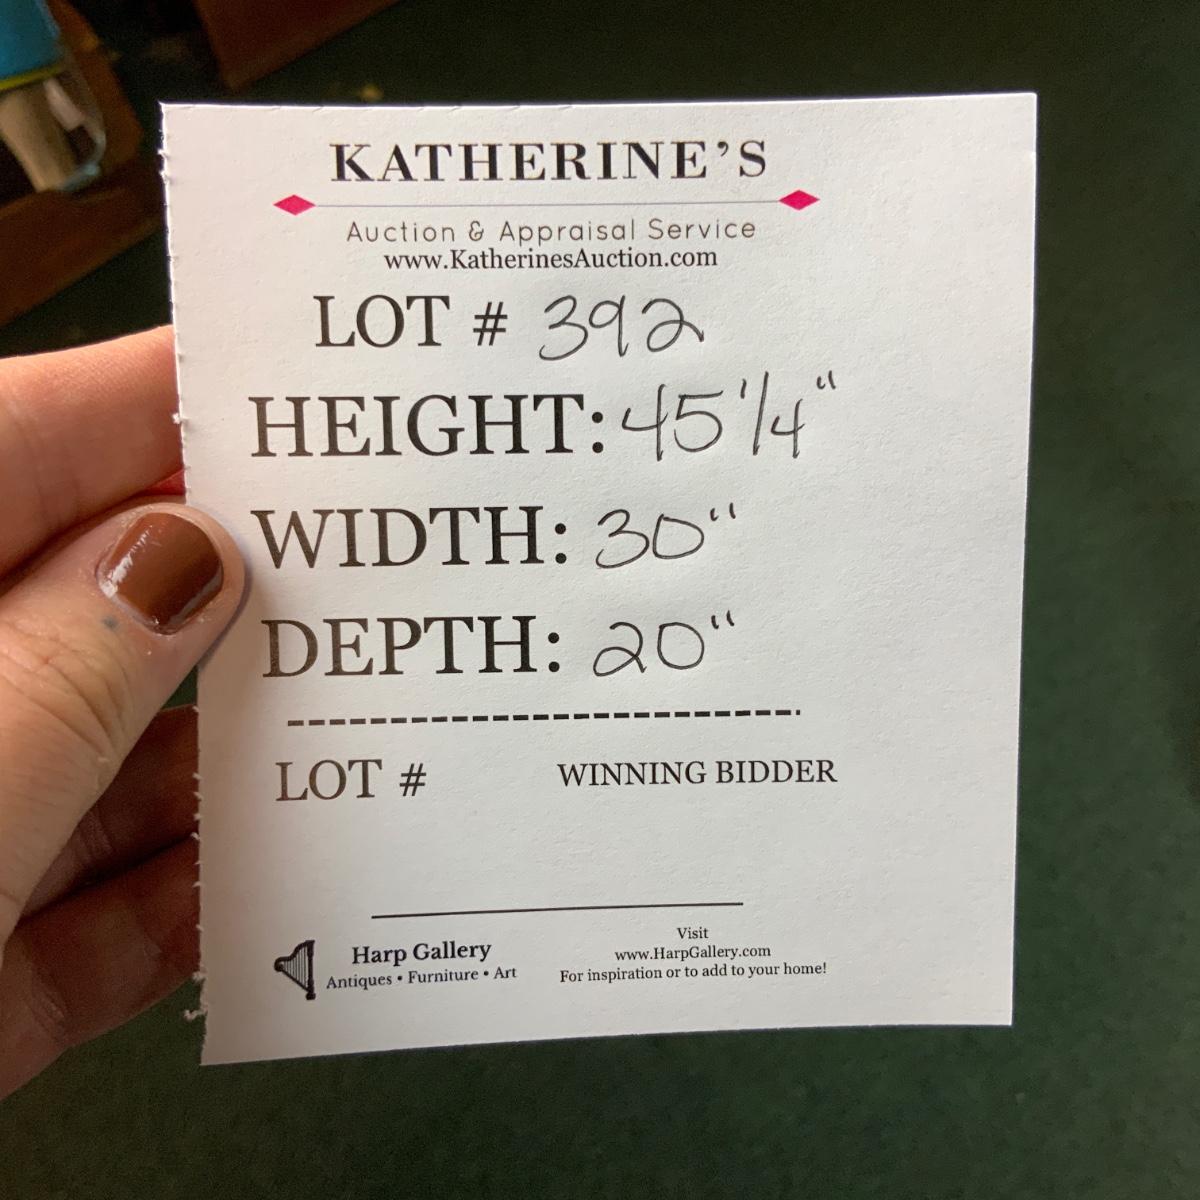 KATHERINE'S
Auction & Appraisal Service
www.KatherinesAuction.com
LOT # 392
HEIGHT: 45 1/4"
WIDTH: 30"
DEPTH: 20"
LOT # WINNING BIDDER
Harp Gallery
Antiques • Furniture • Art
Visit
www.HarpGallery.com
For inspiration or to add to your home!